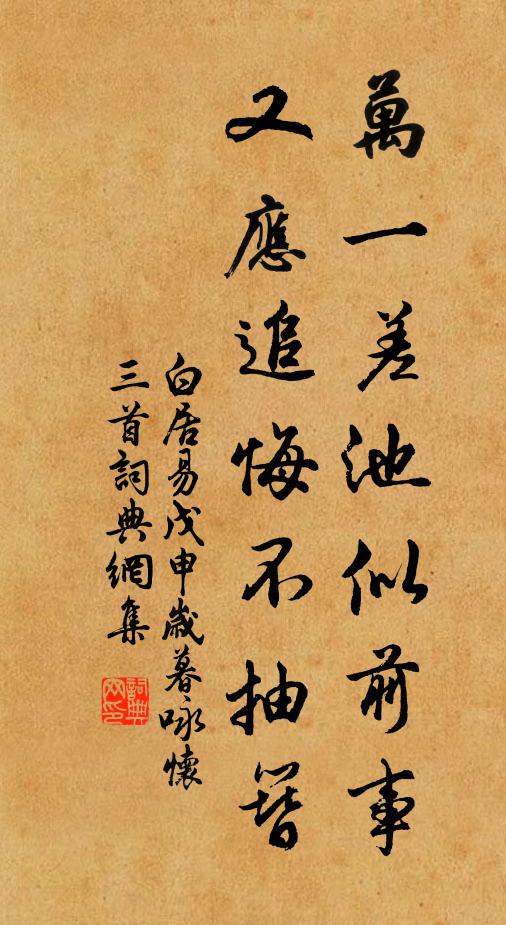 萬一差池似前事
又應追悔不抽簪
白居易戊申歲暮咏懷
三首詞典網集
詞典
网印